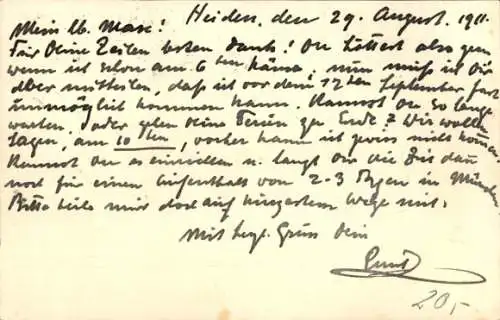 Mein lb. Max! Heiden, den 29. August. 1911.
Für Deine Zeilen besten Dank! Du hättest also gern
wenn ich schon am 6ten käme, nun muss ich Dir
aber mitteilen, dass ich vor dem 12ten September fast
unmöglich kommen kann. Kannst Du so lange
warten, oder gehen Deine Ferien zu Ende? Wir wollen
sagen, am 10ten, vorher kann ich gewiss nicht kommen
Kannst Du es einteilen u. langt Dir die Zeit dann
noch für einen Aufenthalt von 2-3 Tagen in München
Bitte teile mir das auf kürzestem Wege mit.
Mit herzl. Gruss Dein
Ernst
20,-